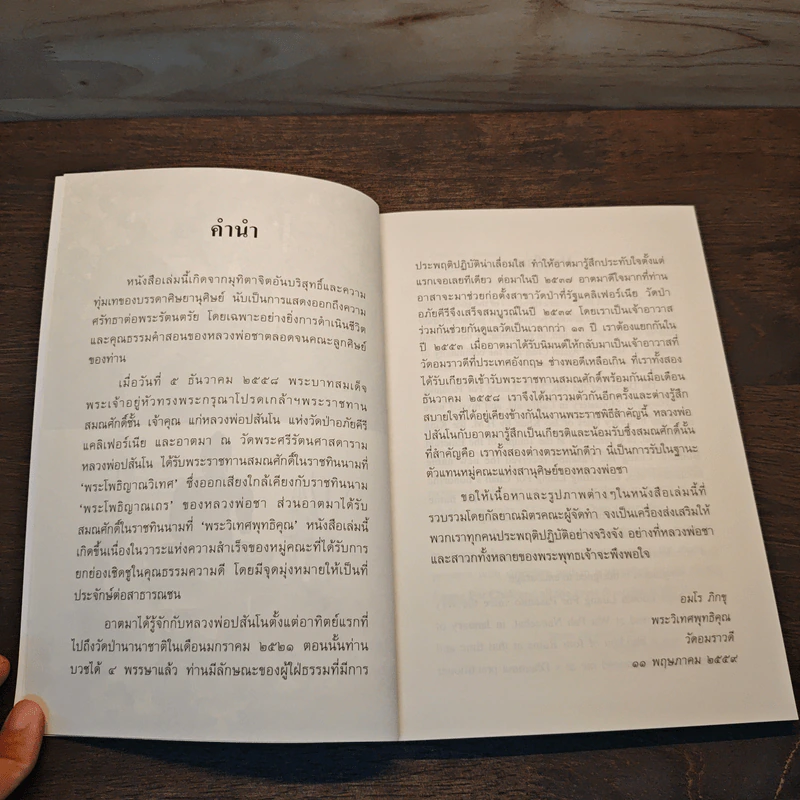 คำนำ
หนังสือเล่มนี้เกิดจากมุทิตาจิตอันบริสุทธิ์และความ
ทุ่มเทของบรรดาศิษยานุศิษย์ นับเป็นการแสดงออกถึงความ
ศรัทธาต่อพระรัตนตรัย โดยเฉพาะอย่างยิ่งการดำเนินชีวิต
และคุณธรรมคำสอนของหลวงพ่อชาตลอดจนคณะลูกศิษย์
ของท่าน
เมื่อวันที่ ๕ ธันวาคม ๒๕๕๘ พระบาทสมเด็จ
พระเจ้าอยู่หัวทรงพระกรุณาโปรดเกล้าฯพระราชทาน
สมณศักดิ์ชั้น เจ้าคุณ แก่หลวงพ่อปสันโน แห่งวัดป่าอภัยคีรี
แคลิเฟอร์เนีย และอาตมา ณ วัดพระศรีรัตนศาสดาราม
หลวงพ่อปสันโน ได้รับพระราชทานสมณศักดิ์ในราชทินนามที่
‘พระโพธิญาณวิเทศ’ ซึ่งออกเสียงใกล้เคียงกับราชทินนาม
‘พระโพธิญาณเถร’ ของหลวงพ่อชา ส่วนอาตมาได้รับ
สมณศักดิ์ในราชทินนามที่ ‘พระวิเทศพุทธิคุณ’ หนังสือเล่มนี้
เกิดขึ้นเนื่องในวาระแห่งความสำเร็จของหมู่คณะที่ได้รับการ
ยกย่องเชิดชูในคุณธรรมความดี โดยมีจุดมุ่งหมายให้เป็นที่
ประจักษ์ต่อสาธารณชน
อาตมาได้รู้จักกับหลวงพ่อปสันโนตั้งแต่อาทิตย์แรกที่
ไปถึงวัดป่านานาชาติในเดือนมกราคม ๒๕๒๑ ตอนนั้นท่าน
บวชได้ ๔ พรรษาแล้ว ท่านมีลักษณะของผู้ใฝ่ธรรมที่มีการ
ประพฤติปฏิบัติน่าเลื่อมใส ทำให้อาตมารู้สึกประทับใจตั้งแต่
แรกเจอเลยทีเดียว ต่อมาในปี ๒๕๓๗ อาตมาดีใจมากที่ท่าน
อาสาจะมาช่วยก่อตั้งสาขาวัดป่าที่รัฐแคลิฟอร์เนีย วัดป่า
อภัยคีรีจึงเสร็จสมบูรณ์ในปี ๒๕๓๙ โดยเราเป็นเจ้าอาวาส
ร่วมกันช่วยกันดูแลวัดเป็นเวลากว่า ๑๓ ปี เราต้องแยกกันใน
ปี ๒๕๕๓ เมื่ออาตมาได้รับนิมนต์ให้กลับมาเป็นเจ้าอาวาสที่
วัดอมราวดีที่ประเทศอังกฤษ ช่างพอดีเหลือเกิน ที่เราทั้งสอง
ได้รับเกียรติเข้ารับพระราชทานสมณศักดิ์พร้อมกันเมื่อเดือน
ธันวาคม ๒๕๕๘ เราจึงได้มารวมตัวกันอีกครั้งและต่างรู้สึก
สบายใจที่ได้อยู่เคียงข้างกันในงานพระราชพิธีสำคัญนี้ หลวงพ่อ
ปสันโนกับอาตมารู้สึกเป็นเกียรติและน้อมรับซึ่งสมณศักดิ์นั้น
ที่สำคัญคือ เราทั้งสองต่างตระหนักดีว่า นี่เป็นการรับในฐานะ
ตัวแทนหมู่คณะแห่งสานุศิษย์ของหลวงพ่อชา
ขอให้เนื้อหาและรูปภาพต่างๆในหนังสือเล่มนี้ที่
รวบรวมโดยกัลยาณมิตรคณะผู้จัดทำ จงเป็นเครื่องส่งเสริมให้
พวกเราทุกคนประพฤติปฏิบัติอย่างจริงจัง อย่างที่หลวงพ่อชา
และสาวกทั้งหลายของพระพุทธเจ้าจะพึงพอใจ
อมโร ภิกขุ
พระวิเทศพุทธิคุณ
วัดอมราวดี
๑๑ พฤษภาคม ๒๕๕๙